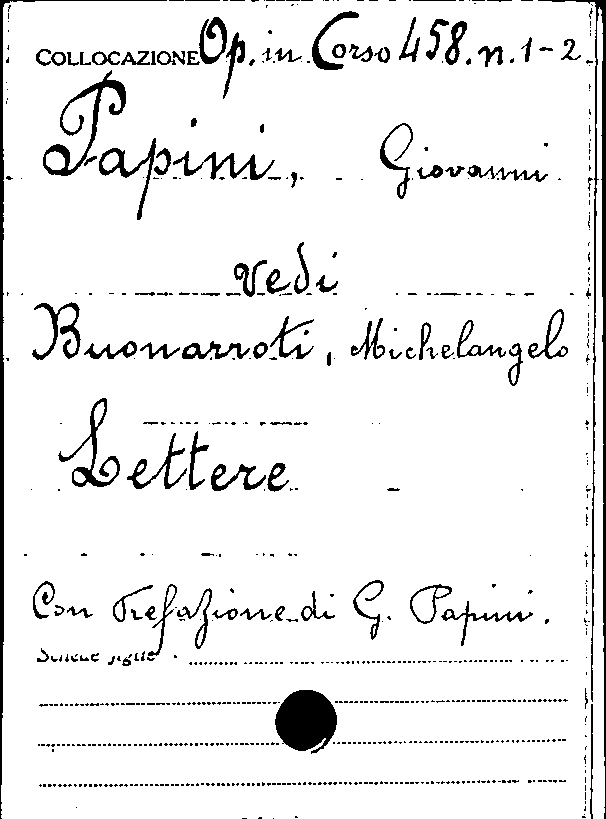 COLLOCAZIONE Op. in Corso 458. n. 1-2
Papini, Giovanni
vedi
Buonarroti, Michelangelo
Lettere
Con Prefazione di G. Papini.
Schede figlie